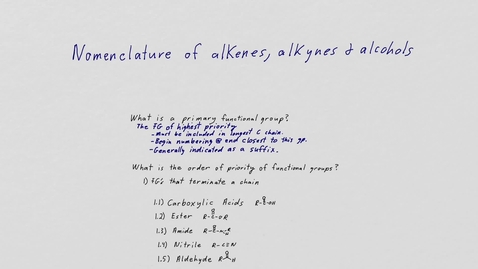 Nomenclature of alkenes, alkynes & alcohols
What is a primary functional group?
The FG of highest priority
-Must be included in longest C chain.
-Begin numbering @ end closest to this gp.
-Generally indicated as a suffix.
What is the order of priority of functional groups?
1) FG's that terminate a chain
1.1) Carboxylic Acids R-C(=O)-OH
1.2) Ester R-C(=O)-OR
1.3) Amide
1.4) Nitrile R-C≡N
1.5) Aldehyde